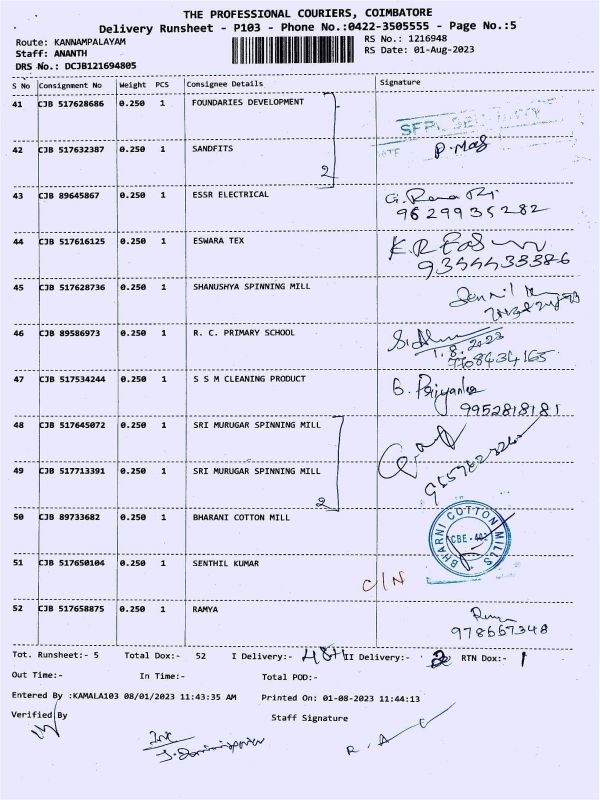 THE PROFESSIONAL COURIERS, COIMBATORE
Delivery Runsheet - P103 - Phone No.:0422-3505555 - Page No.:5
Route: KANNAMPALAYAM RS No.: 1216948
Staff: ANANTH RS Date: 01-Aug-2023
DRS No.: DCJB121694805
S No Consignment No Weight PCS Consignee Details Signature
41 CJB 517628686 0.250 1 FOUNDARIES DEVELOPMENT
42 CJB 517632387 0.250 1 SANDFITS
2
43 CJB 89645867 0.250 1 ESSR ELECTRICAL
9629935282
44 CJB 517616125 0.250 1 ESWARA TEX
9344433386
45 CJB 517628736 0.250 1 SHANUSHYA SPINNING MILL
46 CJB 89586973 0.250 1 R. C. PRIMARY SCHOOL
1.8.2023
7708434165
47 CJB 517534244 0.250 1 S S M CLEANING PRODUCT G. Priyanka
9952818181
48 CJB 517645072 0.250 1 SRI MURUGAR SPINNING MILL
49 CJB 517713391 0.250 1 SRI MURUGAR SPINNING MILL
2
50 CJB 89733682 0.250 1 BHARANI COTTON MILL BHARNI COTTON MILLS
51 CJB 517650104 0.250 1 SENTHIL KUMAR C/N
52 CJB 517658875 0.250 1 RAMYA
Tot. Runsheet:- 5 Total Dox:- 52 I Delivery:- II Delivery:- RTN Dox:- 1
Out Time:- In Time:- Total POD:-
Entered By :KAMALA103 08/01/2023 11:43:35 AM Printed On: 01-08-2023 11:44:13
Verified By Staff Signature